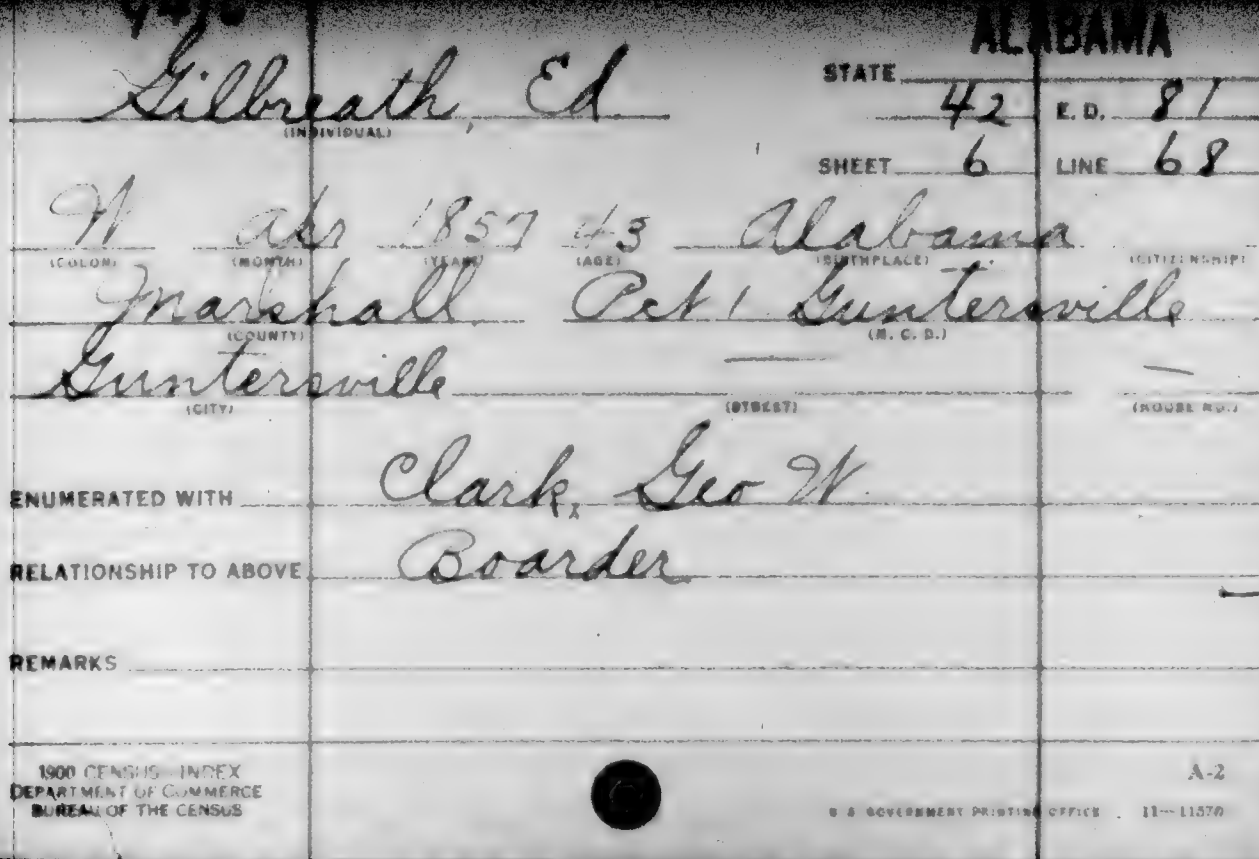 ALABAMA
STATE
Gilbreath, Ed
(INDIVIDUAL)
42 E. D. 81
SHEET 6 LINE 68
W Apr 1857 43 Alabama
(COLOR) (MONTH) (YEAR) (AGE) (BIRTHPLACE) (CITIZENSHIP)
Marshall Pct 1 Guntersville
(COUNTY) (M. C. D.)
Guntersville — —
(CITY) (STREET) (HOUSE NO.)
ENUMERATED WITH Clark, Geo W.
RELATIONSHIP TO ABOVE Boarder
REMARKS
1900 CENSUS—INDEX
DEPARTMENT OF COMMERCE
BUREAU OF THE CENSUS
A-2
U S GOVERNMENT PRINTING OFFICE 11—11570